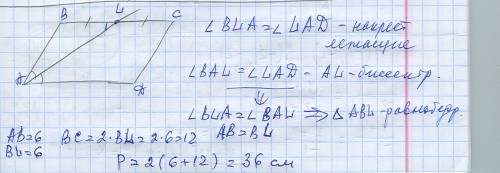 B L C
A D
∠BLA = ∠LAD - накрест
лежащие
∠BAL = ∠LAD - AL - биссектр.
∠BLA = ∠BAL ⟹ △ABL - равнобедр.
AB = BL
AB=6
BL=6
BC = 2·BL = 2·6 = 12
P = 2(6+12) = 36 см